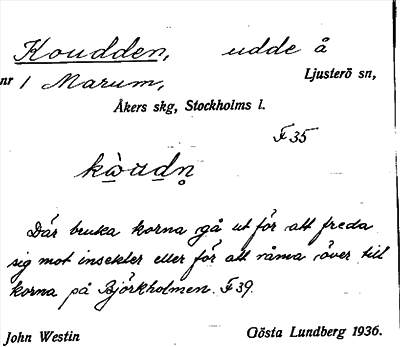 Koudden, udde å
nr 1 Marum, Ljusterö sn,
Åkers skg, Stockholms l.
F35
Där bruka korna gå ut för att freda
sig mot insekter eller för att råma över till
korna på Björkholmen. F39.
John Westin Gösta Lundberg 1936.